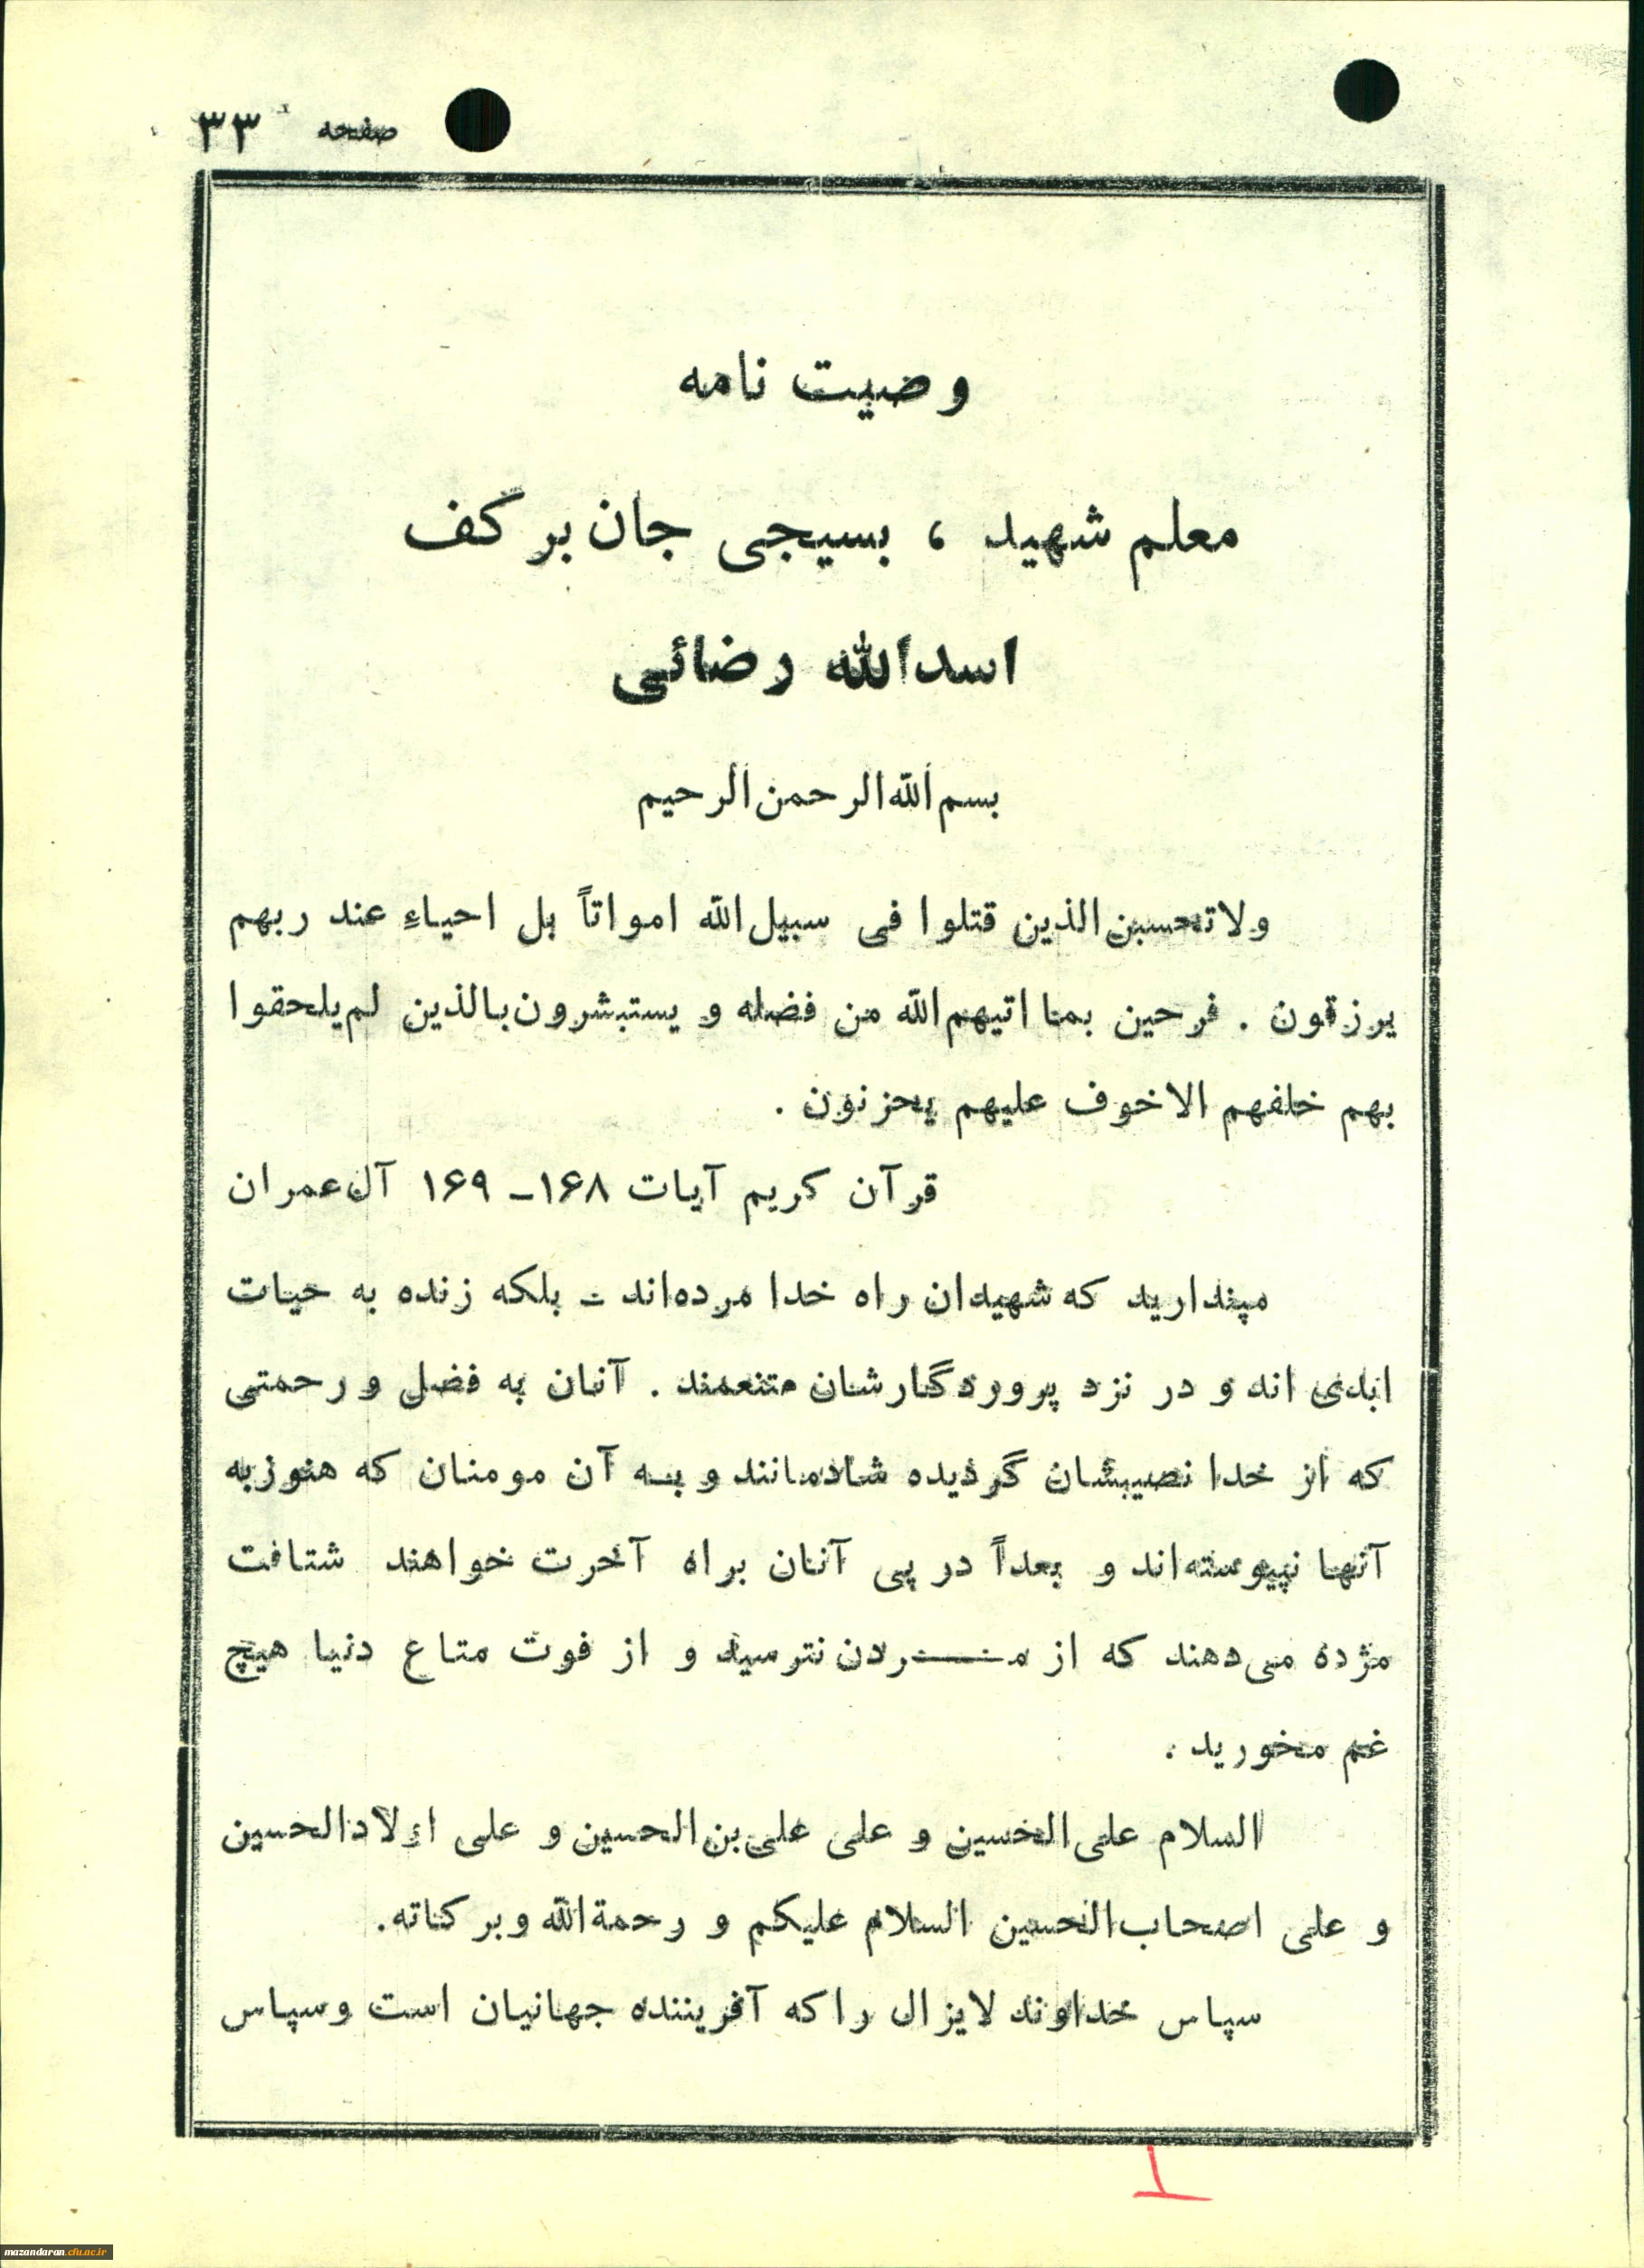 صفحه ۳۳
وصیت نامه
معلم شهید ، بسیجی جان بر کف
اسدالله رضائی
بسم الله الرحمن الرحیم
ولاتحسبن الذین قتلوا فی سبیل الله امواتاً بل احیاءِ عند ربهم
یرزقون . فرحین بما اتیهم الله من فضله و یستبشرون بالذین لم یلحقوا
بهم خلفهم الاخوف علیهم یحزنون .
قرآن کریم آیات ۱۶۸ـ ۱۶۹ آل عمران
مپندارید که شهیدان راه خدا مرده‌اند ـ بلکه زنده به حیات
ابدی اند و در نزد پروردگارشان متنعمند . آنان به فضل و رحمتی
که از خدا نصیبشان گردیده شادمانند و بـه آن مومنان که هنوز به
آنها نپیوسته‌اند و بعداً در پی آنان براه آخرت خواهند شتافت
مژده می‌دهند که از مـــردن نترسید و از فوت متاع دنیا هیچ
غم مخورید .
السلام علی الحسین و علی علی بن الحسین و علی اولاد الحسین
و علی اصحاب الحسین السلام علیکم و رحمة الله و برکاته.
سپاس خداوند لایزال را که آفریننده جهانیان است و سپاس
1
mazandaran.cfu.ac.ir